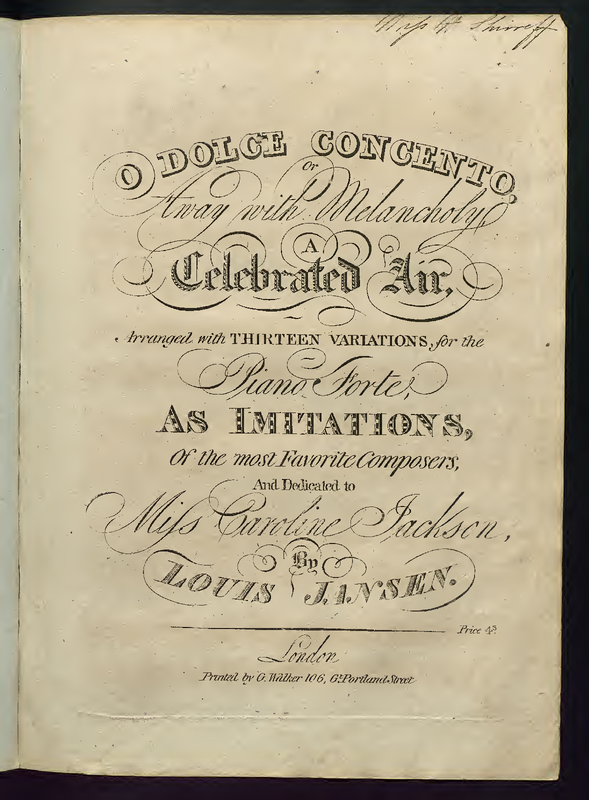 Miss H Shirreff
O DOLCE CONCENTO,
or
Away with Melancholy,
A
Celebrated Air,
Arranged with THIRTEEN VARIATIONS, for the
Piano Forte,
AS IMITATIONS,
Of the most Favorite Composers,
And Dedicated to
Miſs Caroline Jackson,
By
LOUIS JANSEN.
Price 4s.
London
Printed by G. Walker 106, Gt. Portland Street